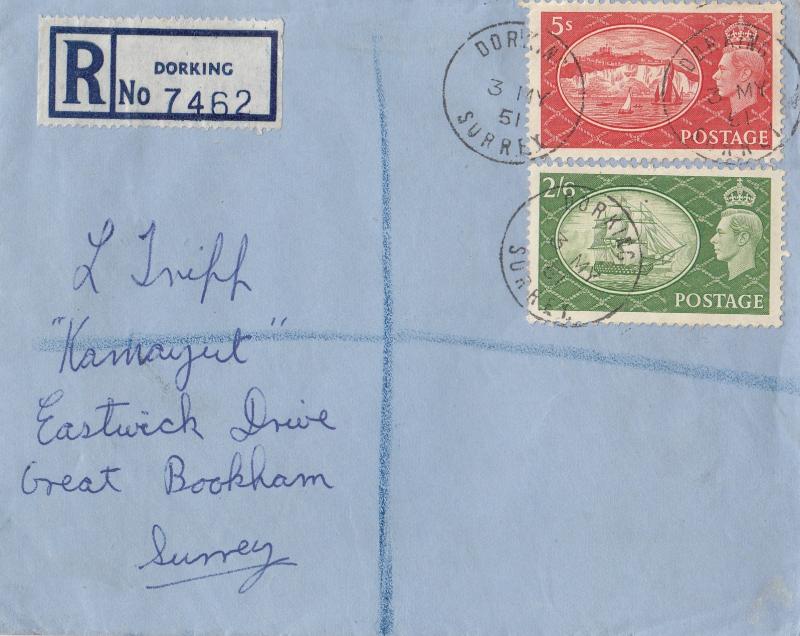 R
DORKING
No 7462
DORKING
3 MY
51
SURREY
5s
POSTAGE
DORKING
3 MY
2/6
POSTAGE
DORKING
3 MY
SURREY
L Tripp
"Kamayut"
Eastwick Drive
Great Bookham
Surrey